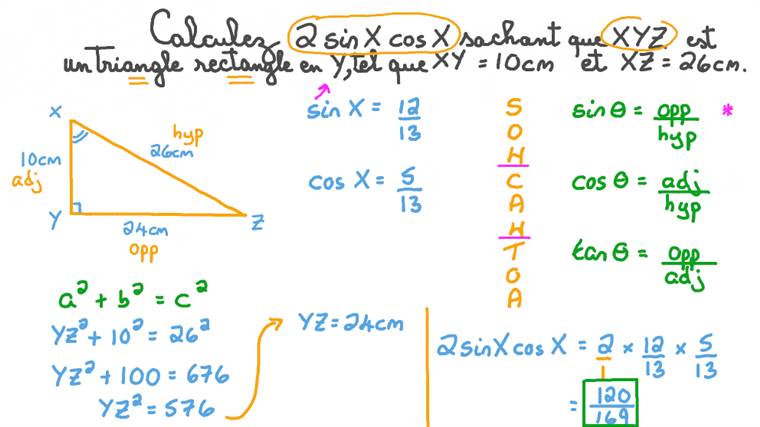 Calculez 2 sin X cos X sachant que XYZ est
un triangle rectangle en Y, tel que XY = 10cm et XZ = 26cm.
X
hyp
26cm
10cm
adj
Y
Z
24cm
opp
sin X = 12/13
cos X = 5/13
S
O
H
C
A
H
T
O
A
sin θ = opp/hyp *
cos θ = adj/hyp
tan θ = opp/adj
a² + b² = c²
YZ² + 10² = 26²
YZ² + 100 = 676
YZ² = 576
YZ = 24cm
2 sin X cos X = 2/1 × 12/13 × 5/13
= 120/169